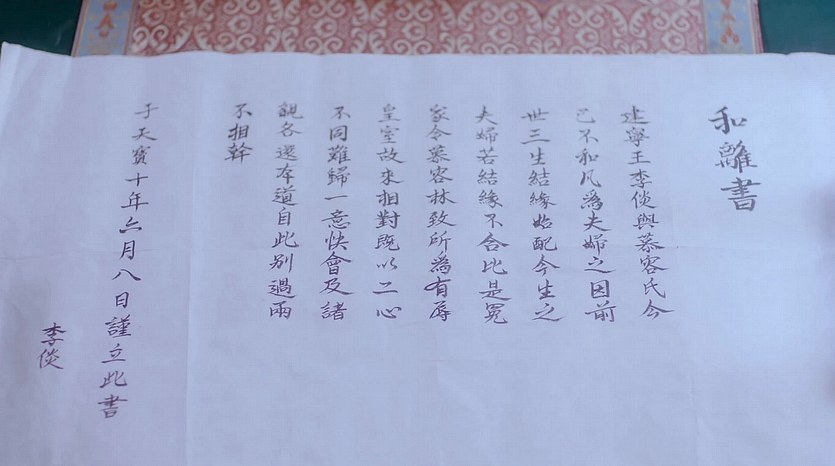 和離書
建寧王李倓與慕容氏今
已不和凡為夫婦之因前
世三生結緣始配今生之
夫婦若結緣不合比是冤
家令慕容林致所為有辱
皇室故來相對既以二心
不同難歸一意快會及諸
親各還本道自此別過兩
不相幹
于天寶十年六月八日謹立此書
李倓